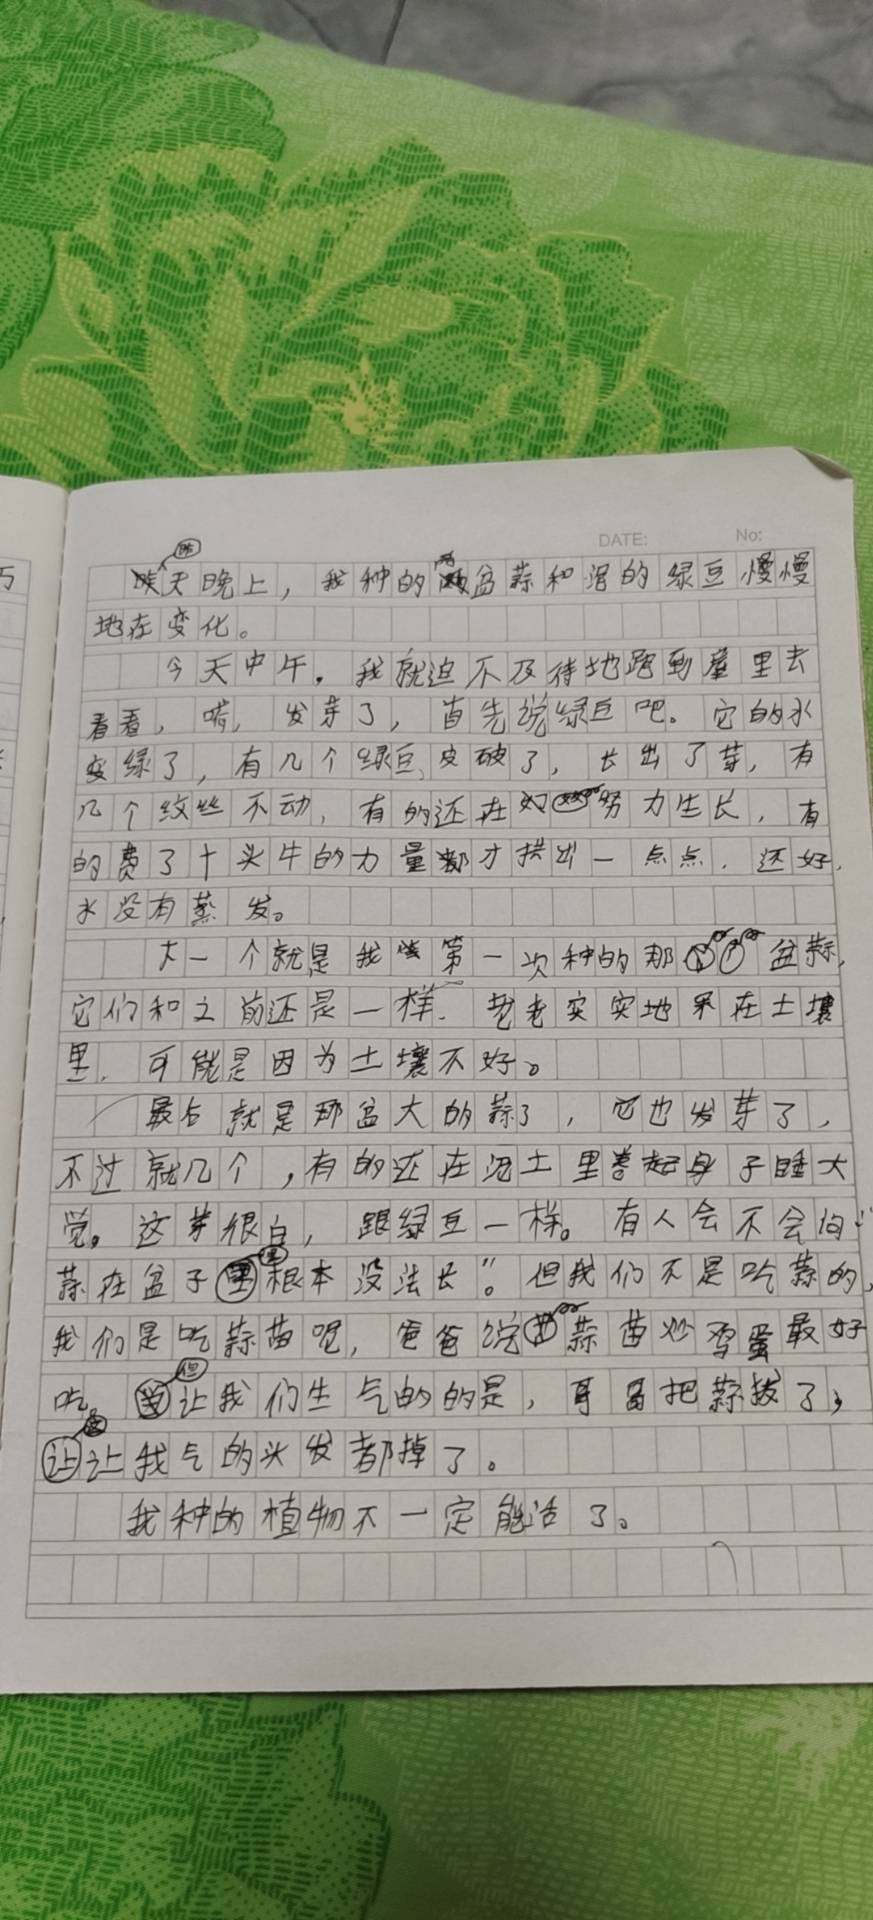 DATE: No:
昨天晚上，我种的两盆蒜和泡的绿豆慢慢
地在变化。
今天中午，我就迫不及待地跑到屋里去
看看，嗬，发芽了，首先说绿豆吧。它的水
变绿了，有几个绿豆皮破了，长出了芽，有
几个纹丝不动，有的还在努力生长，有
的费了十头牛的力量都才拱出一点点，还好，
水没有蒸发。
下一个就是我第一次种的那盆蒜，
它们和之前还是一样，老老实实地呆在土壤
里，可能是因为土壤不好。
最后就是那盆大的蒜了，它也发芽了，
不过就几个，有的还在泥土里卷起身子睡大
觉。这芽很白，跟绿豆一样。有人会不会问：“
蒜在盆子里根本没法长”。但我们不是吃蒜的，
我们是吃蒜苗呢，爸爸说蒜苗炒鸡蛋最好
吃。但让我们生气的的是，哥哥把蒜拔了，
让我气的头发都掉了。
我种的植物不一定能活了。